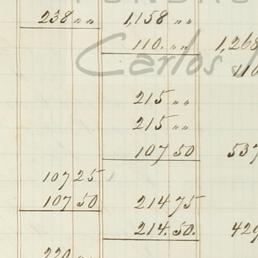 238 〃〃 1,158 〃〃
110. 〃〃 1,268
Carlos
110
215 〃〃
215 〃〃
107 50 537
107 25
107 50 214.75
214.50. 429
220 〃〃